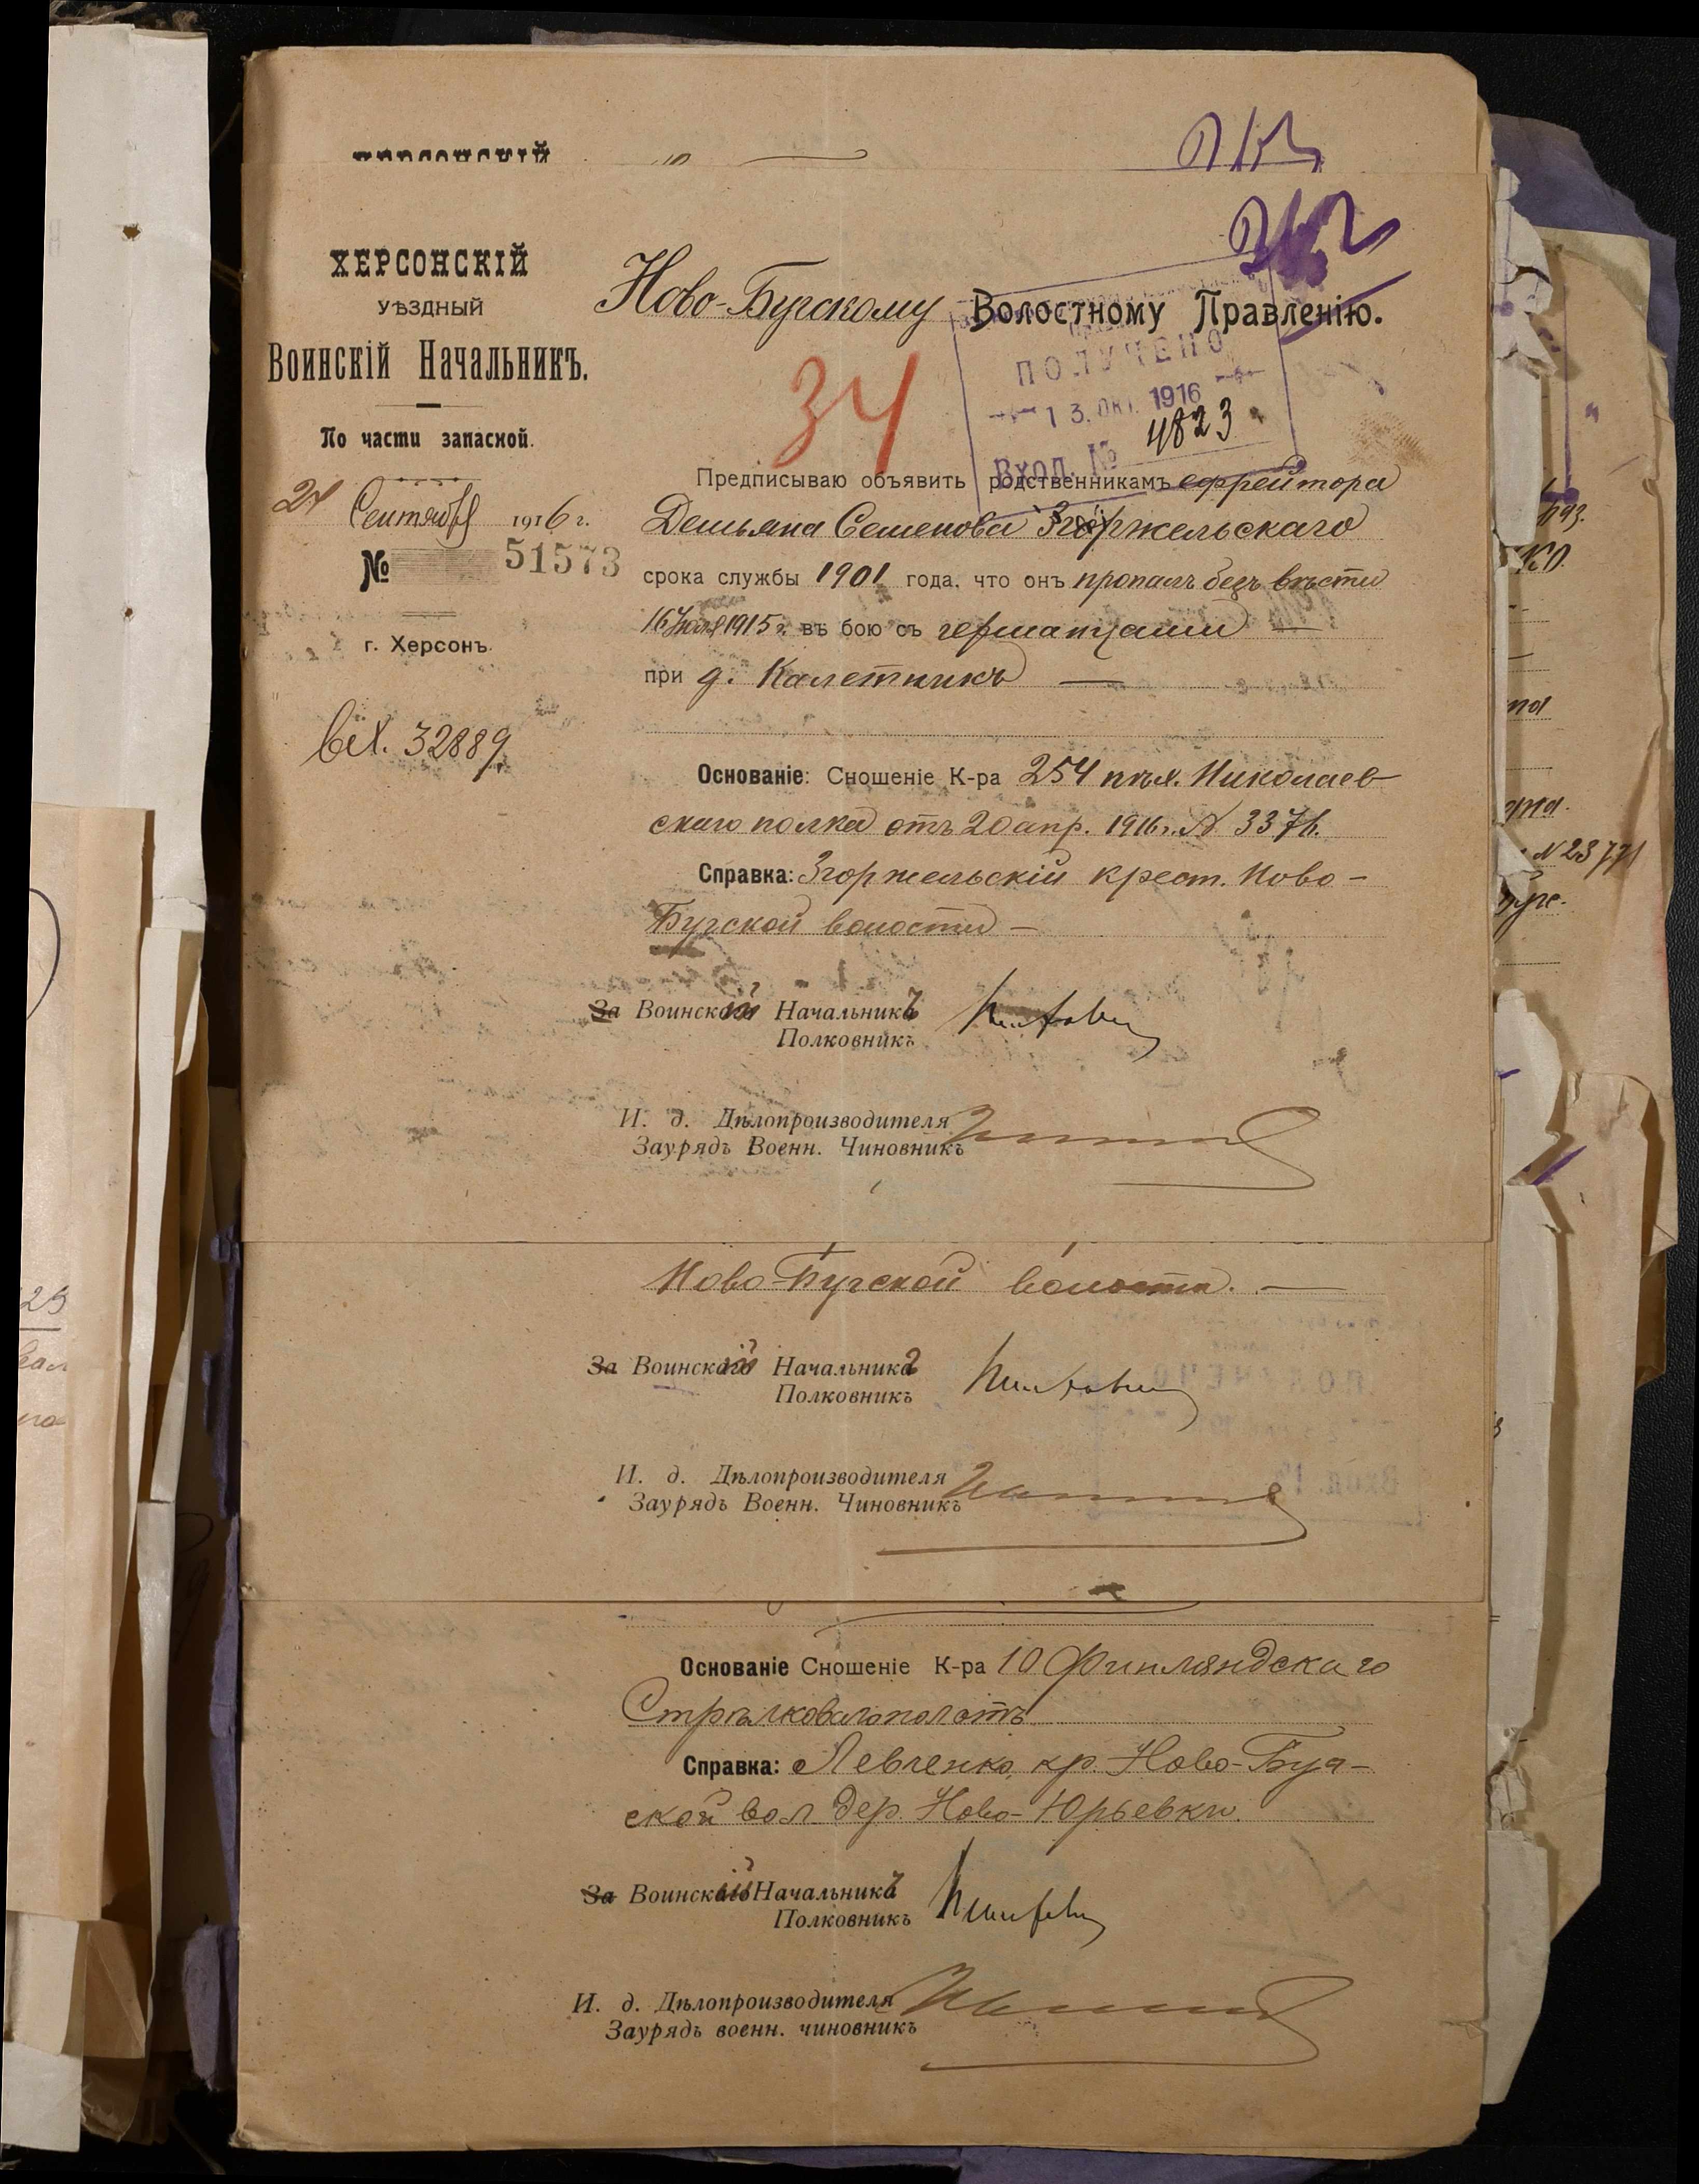 ХЕРСОНСКІЙ
ХЕРСОНСКІЙ
УѢЗДНЫЙ
Воинскій Начальникъ.
По части запасной.
24 Сентября 1916 г.
№ 51573
г. Херсонъ.
Вх. 32889
Ново-Бугскому Волостному Правленію.
34
ПОЛУЧЕНО
13. ОКТ. 1916
Вход. № 4823
Предписываю объявить родственникамъ ефрейтора
Демьяна Семенова Згоржельскаго
срока службы 1901 года, что онъ пропалъ безъ вѣсти
16 Июля 1915 г. въ бою съ германцами —
при д. Калетникъ —
Основаніе: Сношеніе К-ра 254 пѣх. Николаев-
скаго полка отъ 20 апр. 1916 г. № 3376.
Справка: Згоржельскій крест. Ново-
Бугской волости —
За Воинскій Начальникъ
Полковникъ
И. д. Дѣлопроизводителя
Заурядъ Военн. Чиновникъ
Ново-Бугской волости. —
За Воинскій Начальникъ
Полковникъ
И. д. Дѣлопроизводителя
Заурядъ Военн. Чиновникъ
Основаніе Сношеніе К-ра 10 Финляндскаго
Стрѣлковаго пол отъ
Справка: Левченко, кр. Ново-Буг-
ской вол дер. Ново-Юрьевки.
За Воинскій Начальникъ
Полковникъ
И. д. Дѣлопроизводителя
Заурядъ военн. чиновникъ
№ 23771